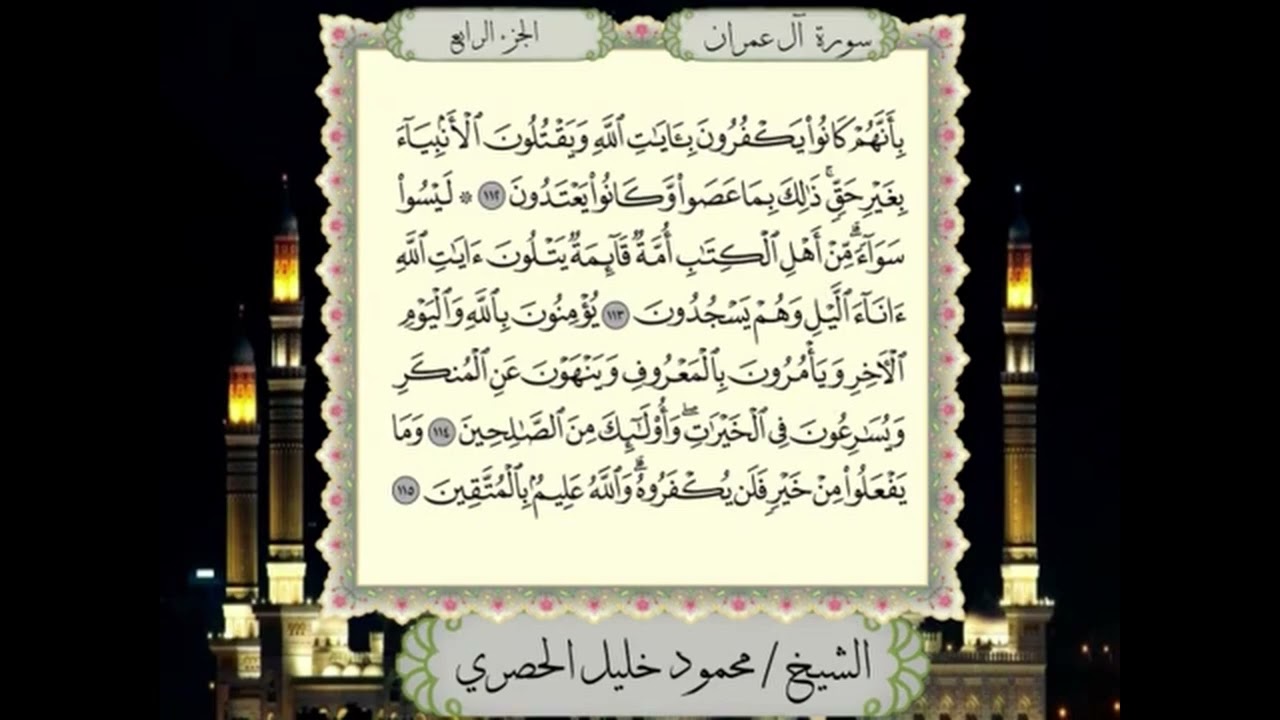 سورة آل عمران
الجزء الرابع
بِأَنَّهُمْ كَانُوا۟ يَكْفُرُونَ بِـَٔايَـٰتِ ٱللَّهِ وَيَقْتُلُونَ ٱلْأَنۢبِيَآءَ
بِغَيْرِ حَقٍّۢ ۚ ذَٰلِكَ بِمَا عَصَوا۟ وَّكَانُوا۟ يَعْتَدُونَ ١١٢ ۞ لَيْسُوا۟
سَوَآءًۭ ۗ مِّنْ أَهْلِ ٱلْكِتَـٰبِ أُمَّةٌۭ قَآئِمَةٌۭ يَتْلُونَ ءَايَـٰتِ ٱللَّهِ
ءَانَآءَ ٱلَّيْلِ وَهُمْ يَسْجُدُونَ ١١٣ يُؤْمِنُونَ بِٱللَّهِ وَٱلْيَوْمِ
ٱلْـَٔاخِرِ وَيَأْمُرُونَ بِٱلْمَعْرُوفِ وَيَنْهَوْنَ عَنِ ٱلْمُنكَرِ
وَيُسَـٰرِعُونَ فِى ٱلْخَيْرَٰتِ ۖ وَأُو۟لَـٰٓئِكَ مِنَ ٱلصَّـٰلِحِينَ ١١٤ وَمَا
يَفْعَلُوا۟ مِنْ خَيْرٍۢ فَلَن يُكْفَرُوهُ ۗ وَٱللَّهُ عَلِيمٌۢ بِٱلْمُتَّقِينَ ١١٥
الشيخ / محمود خليل الحصري